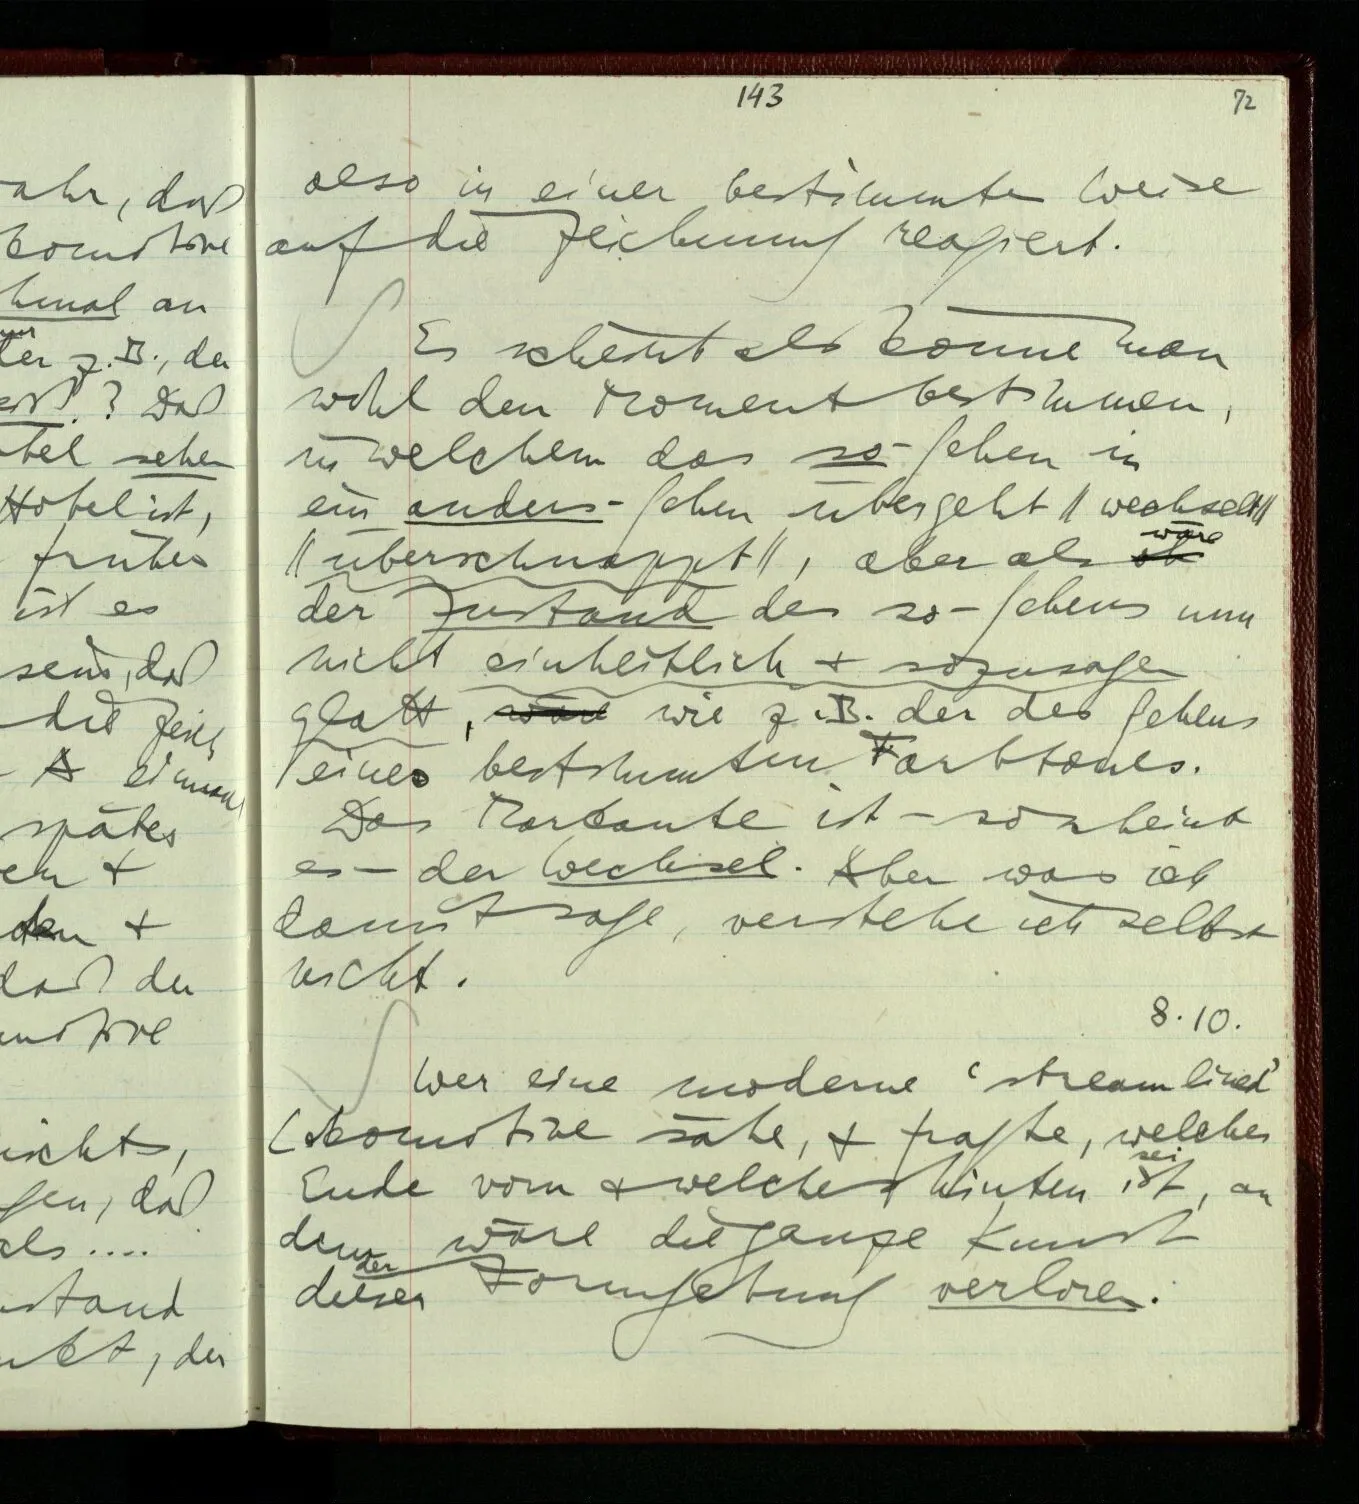 143
72
also in einer bestimmten Weise
auf die Zeichnung reagiert.
Es scheint als könne man
wohl den Moment bestimmen,
in welchem das so-sehen in
ein anders-sehen übergeht // wechselt //
// überschnappt //, aber als wäre ob
der Zustand des so-sehens nun
nicht einheitlich + sozusagen
glatt, wäre wie z.B. der des Sehens
eines bestimmten Farbtones.
Das Markante ist – so scheint
es – der Wechsel. Aber was ich
damit sage, verstehe ich selbst
nicht.
8.10.
Wer eine moderne ‘streamlined’
Lokomotive sähe, + fragte, welches
Ende vorn + welches hinten sei ist, an
dem wäre die ganze Kunst
der dieser Formgebung verloren.
ahr, daß
komotive
an
z.B., der
? Daß
bel sehen
Hobel ist,
früher
ist es
seins, daß
die Zeich
einmal
später
+
den +
daß der
omotive
nichts,
gen, daß
als ....
stand
, der